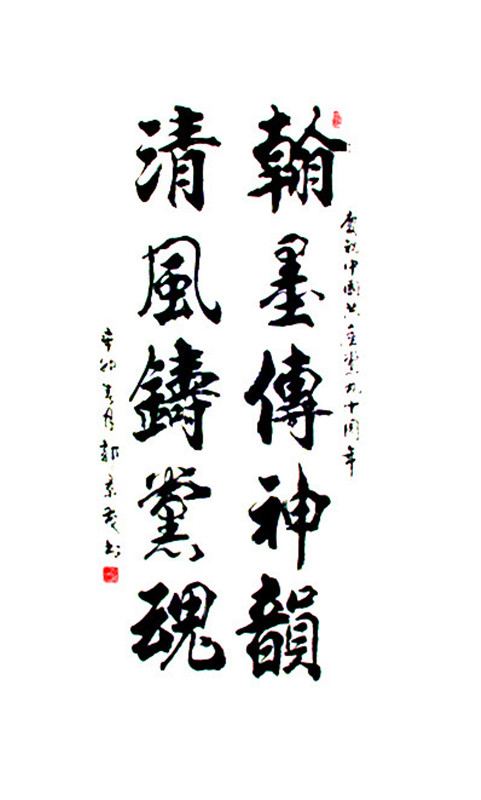 慶祝中國共產黨九十周年
翰墨傳神韻
清風鑄黨魂
辛卯春月郭